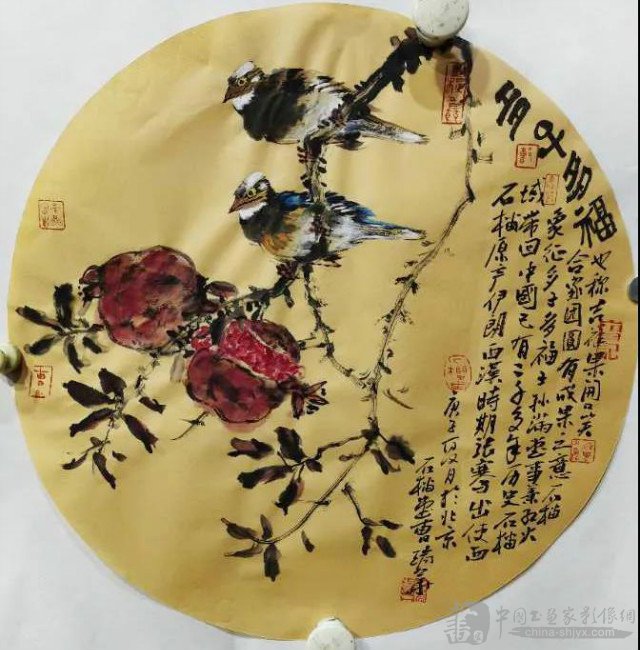 多子多福
石榴原产伊朗西漢時期張騫出使西
域带回中國已有二千多年历史石榴
象征多子多福子孙满堂事業红火
合家團圓有成果之意石榴
也称吉祥果開口笑
庚子 月於北京
石榴堂曹瑞
中国书画家影像網
china-shjyx.com